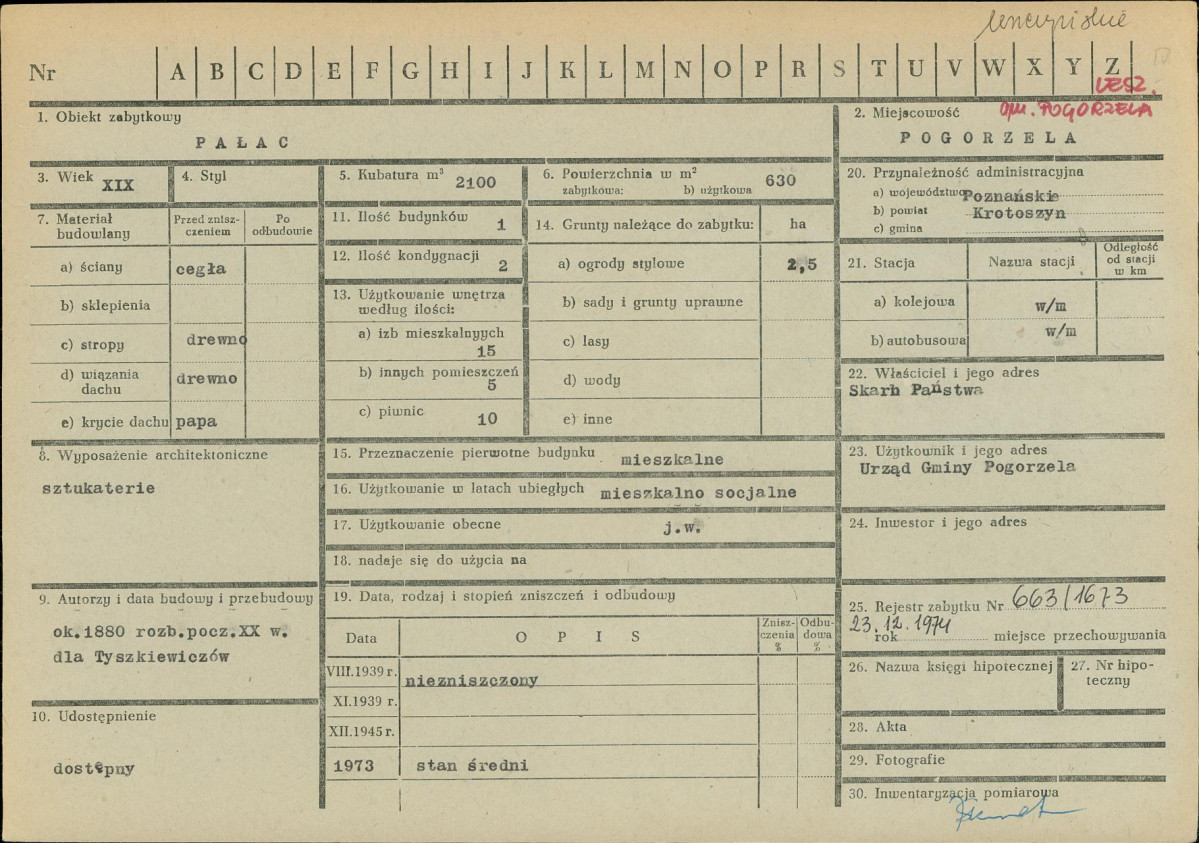 Nr A B C D E F G H I J K L M N O P R S T U V W X Y Z
LESZ.
gm. POGORZELA
1. Obiekt zabytkowy
PAŁAC
2. Miejscowość
POGORZELA
3. Wiek XIX
4. Styl
5. Kubatura m³ 2100
6. Powierzchnia w m²
zabytkowa: b) użytkowa 630
20. Przynależność administracyjna
a) województwo Poznańskie
b) powiat Krotoszyn
c) gmina
7. Materiał budowlany
Przed zniszczeniem
Po odbudowie
a) ściany cegła
b) sklepienia
c) stropy drewno
d) wiązania dachu drewno
e) krycie dachu papa
11. Ilość budynków 1
12. Ilość kondygnacji 2
13. Użytkowanie wnętrza
według ilości:
a) izb mieszkalnyych
15
b) innych pomieszczeń
5
c) piwnic 10
14. Grunty należące do zabytku: ha
a) ogrody stylowe 2,5
b) sady i grunty uprawne
c) lasy
d) wody
e) inne
21. Stacja Nazwa stacji
Odległość
od stacji
w km
a) kolejowa w/m
b) autobusowa w/m
22. Właściciel i jego adres
Skarb Państwa
8. Wyposażenie architektoniczne
sztukaterie
15. Przeznaczenie pierwotne budynku mieszkalne
16. Użytkowanie w latach ubiegłych mieszkalno socjalne
17. Użytkowanie obecne j.w.
18. nadaje się do użycia na
23. Użytkownik i jego adres
Urząd Gminy Pogorzela
24. Inwestor i jego adres
9. Autorzy i data budowy i przebudowy
ok.1880 rozb.pocz.XX w.
dla Tyszkiewiczów
10. Udostępnienie
dostępny
19. Data, rodzaj i stopień zniszczeń i odbudowy
Data OPIS
Zniszczenia
%
Odbudowa
%
VIII.1939 r. niezniszczony
XI.1939 r.
XII.1945 r.
1973 stan średni
25. Rejestr zabytku Nr 663/1673
23.12.1974
rok miejsce przechowywania
26. Nazwa księgi hipotecznej
27. Nr hipoteczny
28. Akta
29. Fotografie
30. Inwentaryzacja pomiarowa